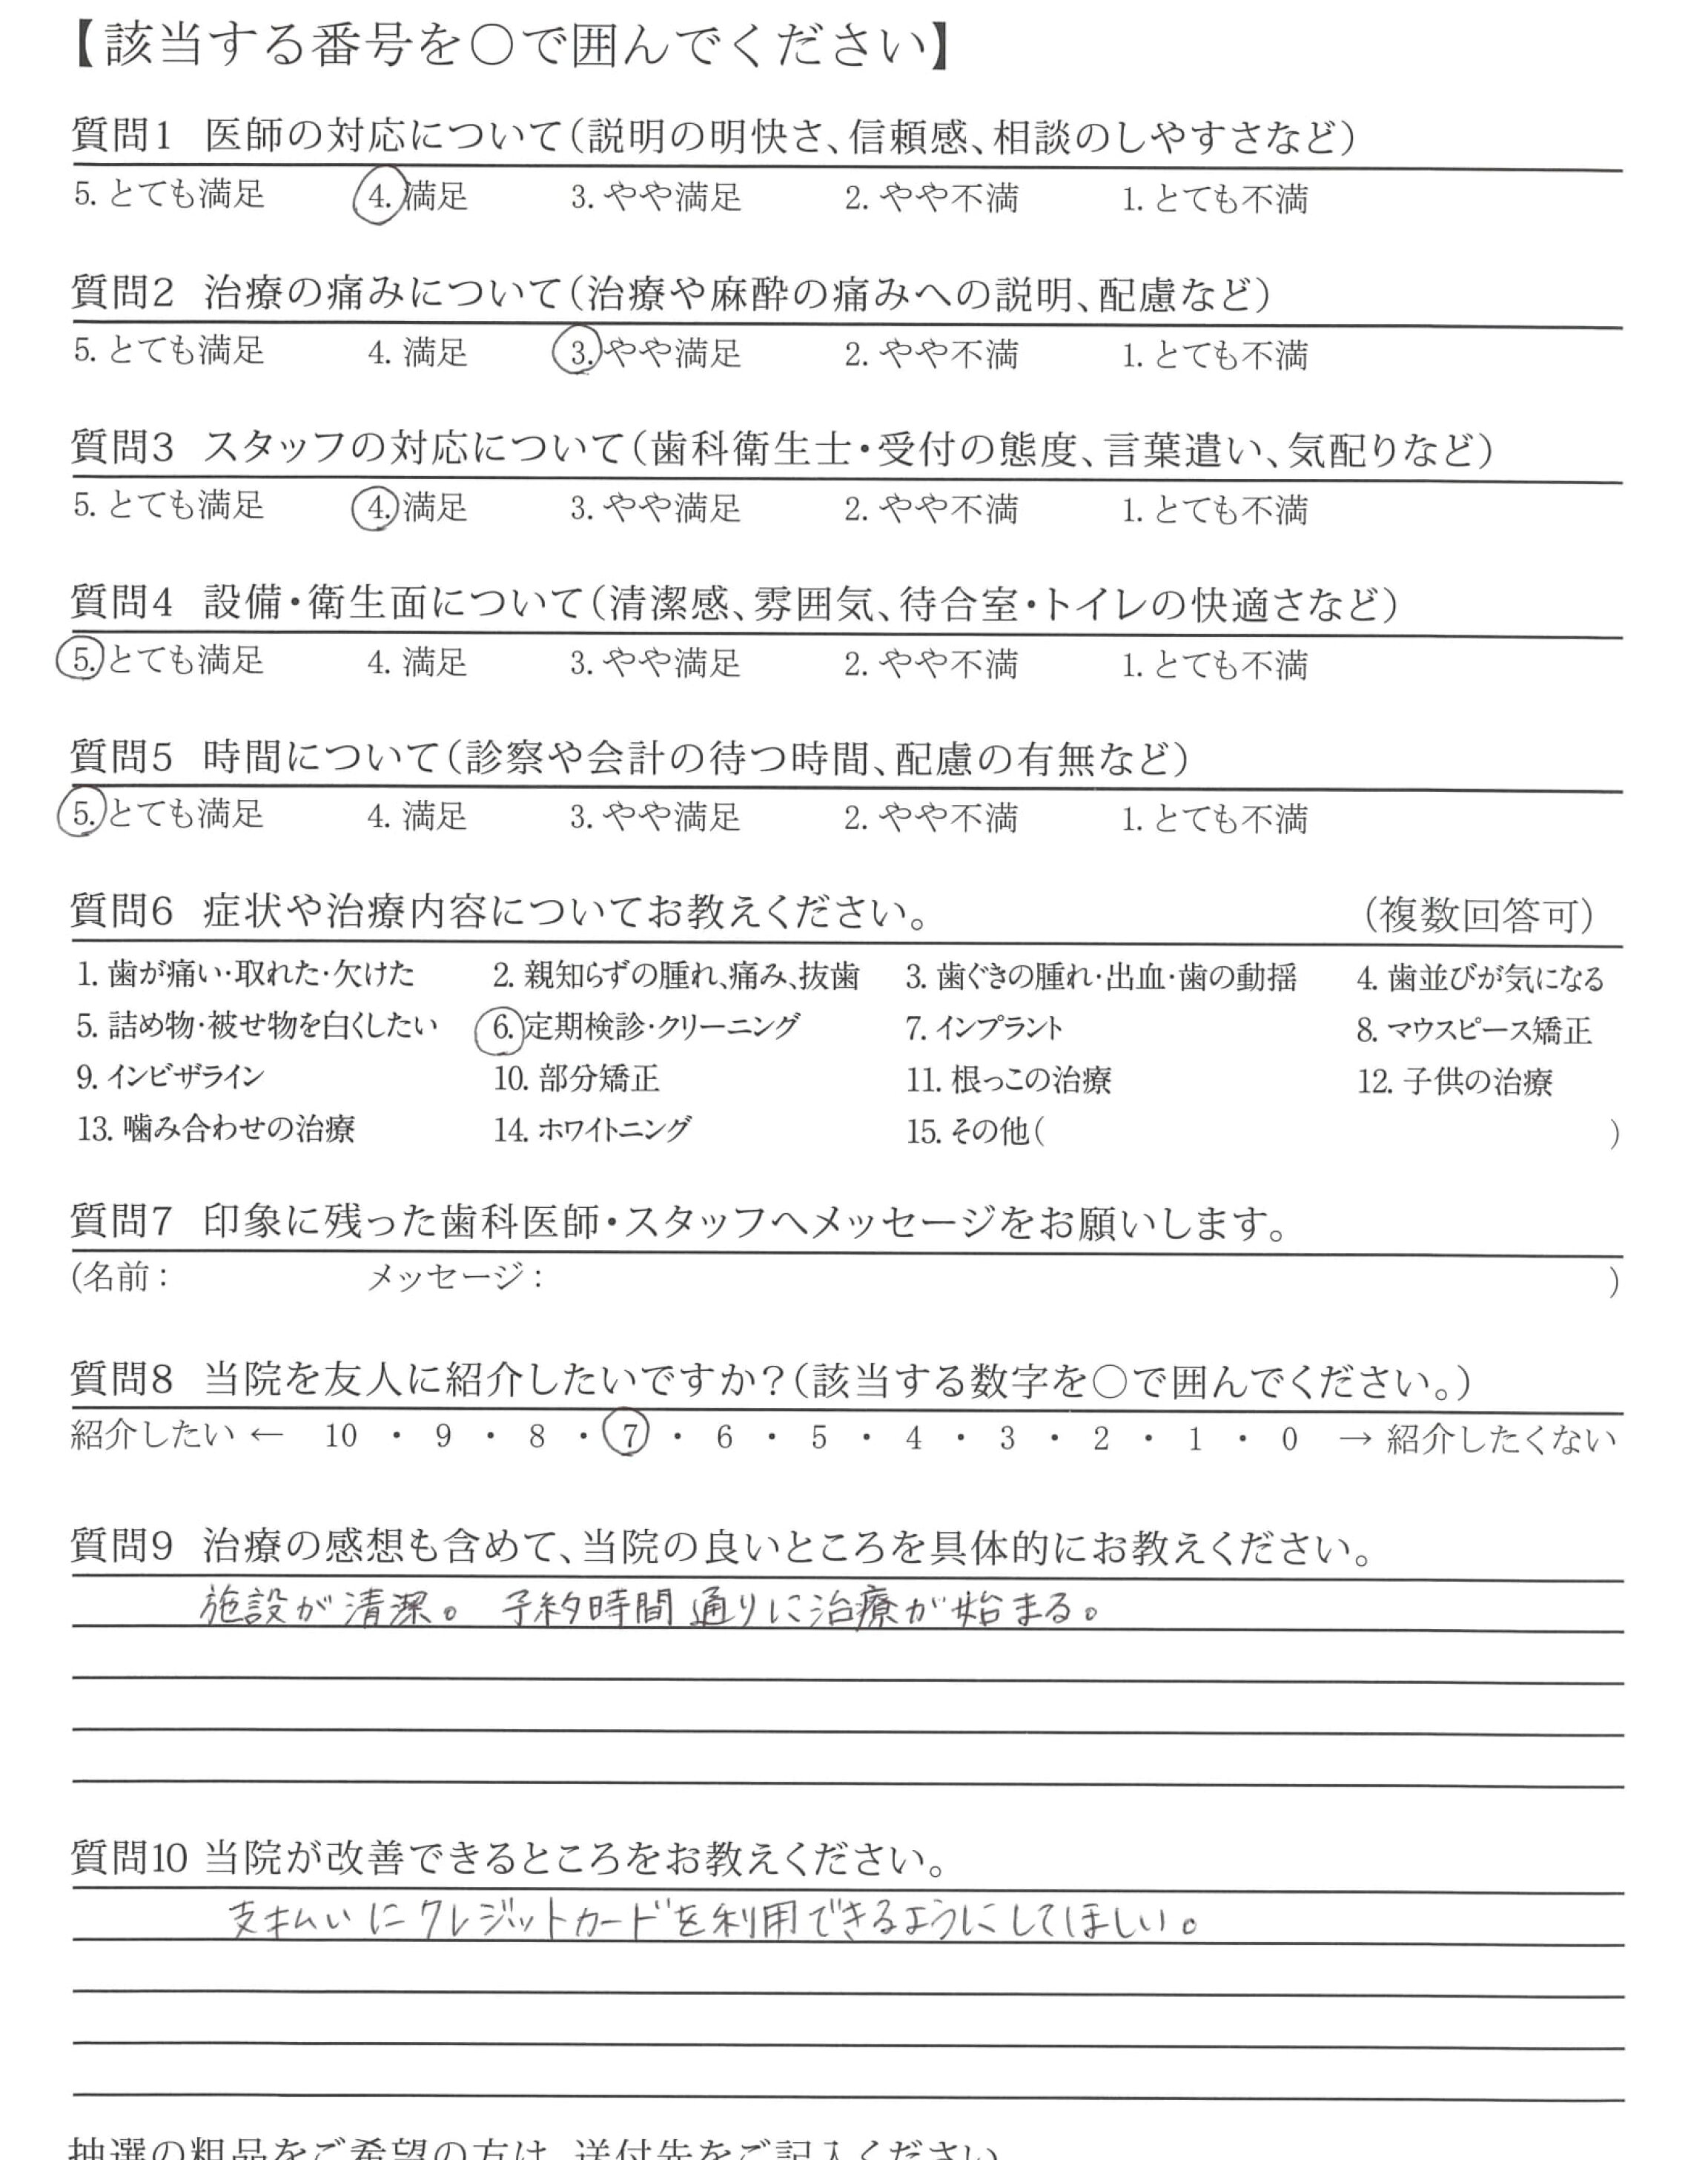 【該当する番号を○で囲んでください】
質問1 医師の対応について（説明の明快さ、信頼感、相談のしやすさなど）
5. とても満足 4. 満足 3. やや満足 2. やや不満 1. とても不満
質問2 治療の痛みについて（治療や麻酔の痛みへの説明、配慮など）
5. とても満足 4. 満足 3. やや満足 2. やや不満 1. とても不満
質問3 スタッフの対応について（歯科衛生士・受付の態度、言葉遣い、気配りなど）
5. とても満足 4. 満足 3. やや満足 2. やや不満 1. とても不満
質問4 設備・衛生面について（清潔感、雰囲気、待合室・トイレの快適さなど）
5. とても満足 4. 満足 3. やや満足 2. やや不満 1. とても不満
質問5 時間について（診察や会計の待つ時間、配慮の有無など）
5. とても満足 4. 満足 3. やや満足 2. やや不満 1. とても不満
質問6 症状や治療内容についてお教えください。 （複数回答可）
1. 歯が痛い・取れた・欠けた 2. 親知らずの腫れ、痛み、抜歯 3. 歯ぐきの腫れ・出血・歯の動揺 4. 歯並びが気になる
5. 詰め物・被せ物を白くしたい 6. 定期検診・クリーニング 7. インプラント 8. マウスピース矯正
9. インビザライン 10. 部分矯正 11. 根っこの治療 12. 子供の治療
13. 噛み合わせの治療 14. ホワイトニング 15. その他（ ）
質問7 印象に残った歯科医師・スタッフへメッセージをお願いします。
（名前： メッセージ： ）
質問8 当院を友人に紹介したいですか？（該当する数字を○で囲んでください。）
紹介したい ← 10 ・ 9 ・ 8 ・ 7 ・ 6 ・ 5 ・ 4 ・ 3 ・ 2 ・ 1 ・ 0 → 紹介したくない
質問9 治療の感想も含めて、当院の良いところを具体的にお教えください。
施設が清潔。 予約時間通りに治療が始まる。
質問10 当院が改善できるところをお教えください。
支払いにクレジットカードを利用できるようにしてほしい。
抽選の粗品をご希望の方は、送付先をご記入ください